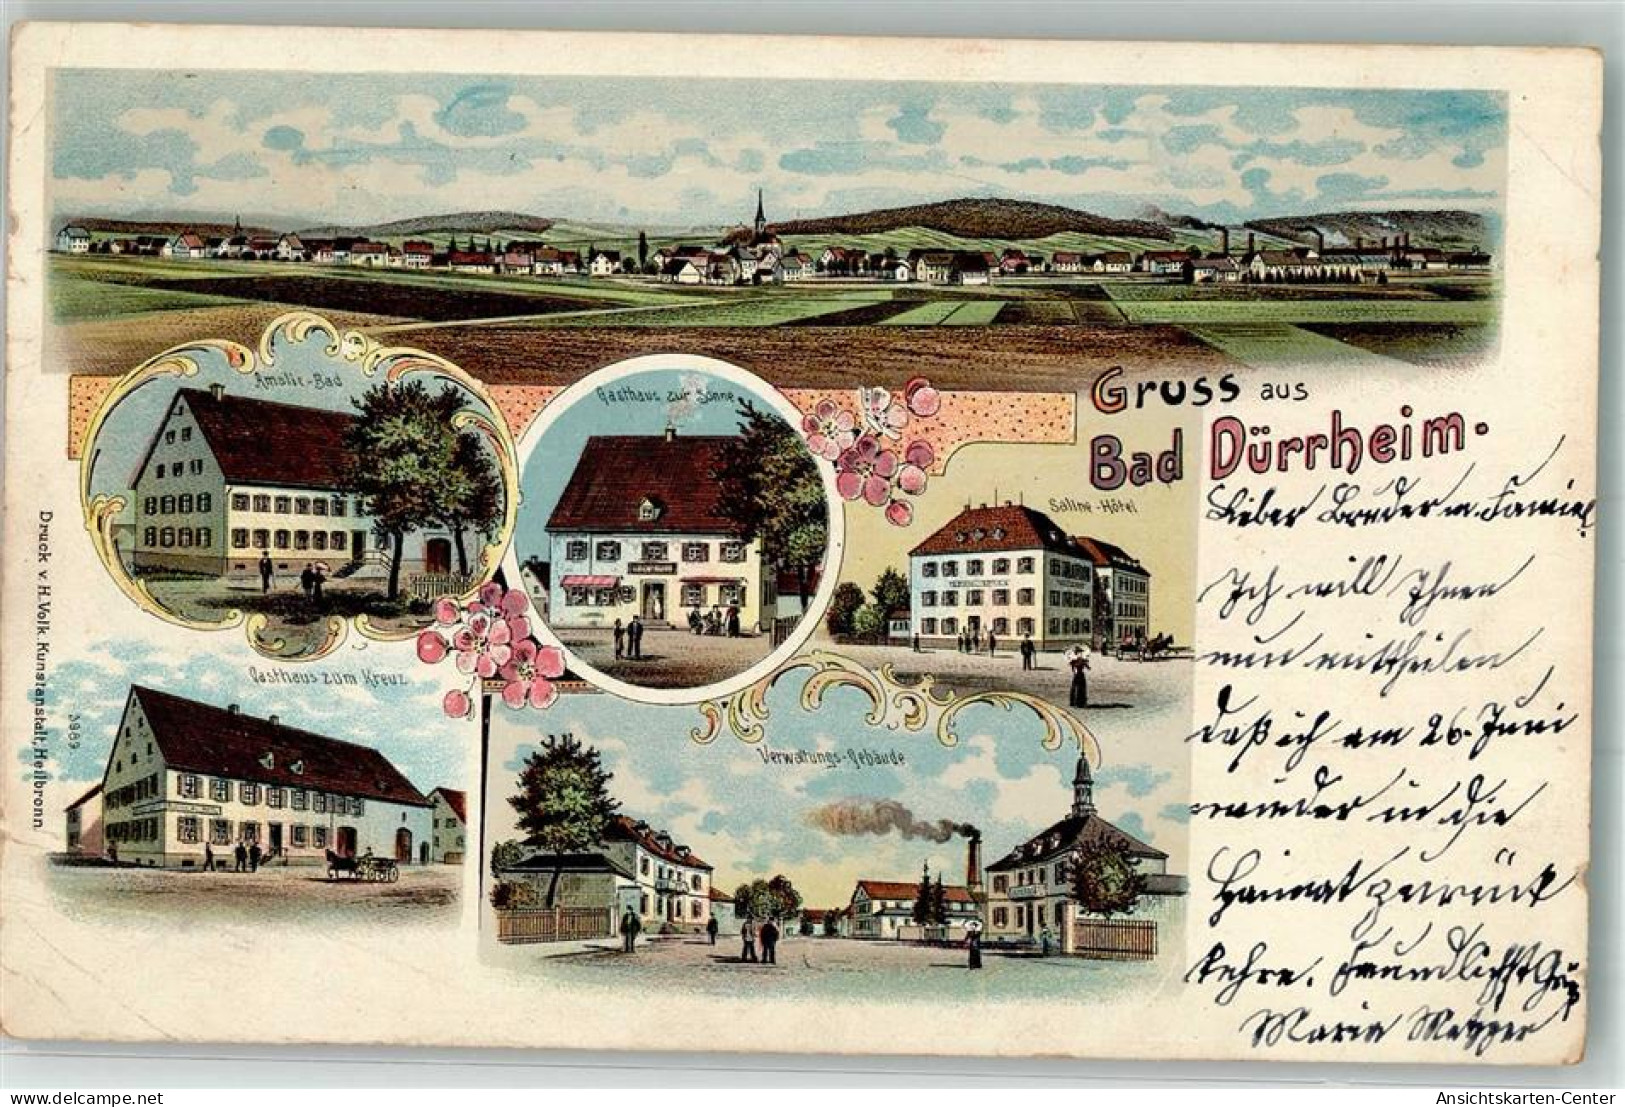 Amalie-Bad
Gasthaus zur Sonne
Gruss aus
Bad Dürrheim.
Saline-Hôtel
Lieber Bruder u. Familie!
Ich will Ihnen
nun mittheilen
daß ich am 26. Juni
wieder in die
Heimat zurück
kehre. Freundlichst Gruß
Maria Metzger
Gasthaus zum Kreuz
Verwaltungs-Gebäude
Druck v. H. Volk, Kunstanstalt, Heilbronn.
3989.
Ansichtskarten-Center